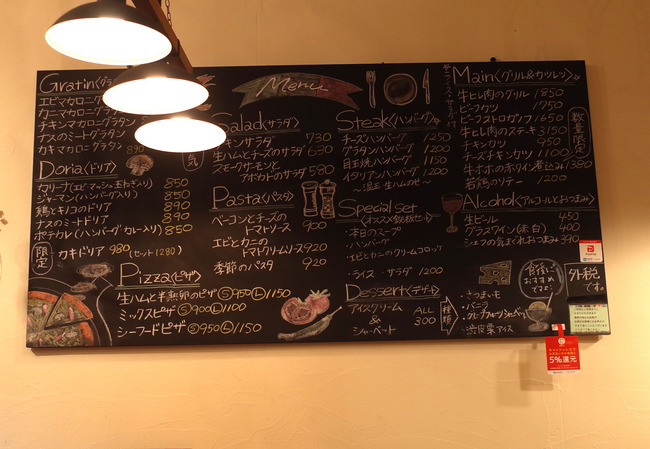 Menu
Gratin〈グラ
エビマカロニグ
カニマカロニグラ
チキンマカロニグラタン
ナスのミートグラタン
カキマカロニグラタン 890
気
Doria〈ドリア〉
カリーナ(エビマッシュ玉ねぎ入り) 850
ジャーマン(ハンバーグ入り) 850
鶏とキノコのドリア 890
ナスのミートドリア 890
ポテカレ(ハンバーグ・カレー入り) 850
限定
カキドリア 980 (セット1280)
Pizza〈ピザ〉
生ハムと半熟卵のピザ Ⓢ950 Ⓛ1150
ミックスピザ Ⓢ900 Ⓛ1100
シーフードピザ Ⓢ950 Ⓛ1150
Salad〈サラダ〉
チキンサラダ 730
生ハムとチーズのサラダ 680
スモークサーモンと
アボカドのサラダ 580
Pasta〈パスタ〉
ベーコンとチーズの
トマトソース 900
エビとカニの
トマトクリームソース 920
季節のパスタ 920
Steak〈ハンバーグ〉
チーズハンバーグ 1250
グラタンハンバーグ 1200
目玉焼ハンバーグ 1150
イタリアンハンバーグ 1200
〜温玉・生ハムのせ〜
Special set
〈オススメ鉄板セット〉
・本日のスープ
・ハンバーグ
・エビとカニのクリームコロッケ
・ライス・サラダ 1200
Dessert〈デザート〉
アイスクリーム
&
シャーベット
ALL
300
種類
・さつまいも
・バニラ
・グレープフルーツシャーベット
・渋皮栗アイス
食後に
おすすめ
です
Main〈グリル&カツレツ〉
牛ヒレ肉のグリル 1850
ビーフカツ 1750
ビーフストロガノフ 1650
牛ヒレ肉のステーキ 3150
チキンカツ 950
チーズチキンカツ 1100
牛ホホのホワイン煮込み 1380
若鶏のソテー 1200
数量限定
Alcohol〈アルコールとおつまみ〉
生ビール 450
グラスワイン(赤・白) 400
シェフの気まぐれおつまみ 390
外税
です。
PayPay
5%還元